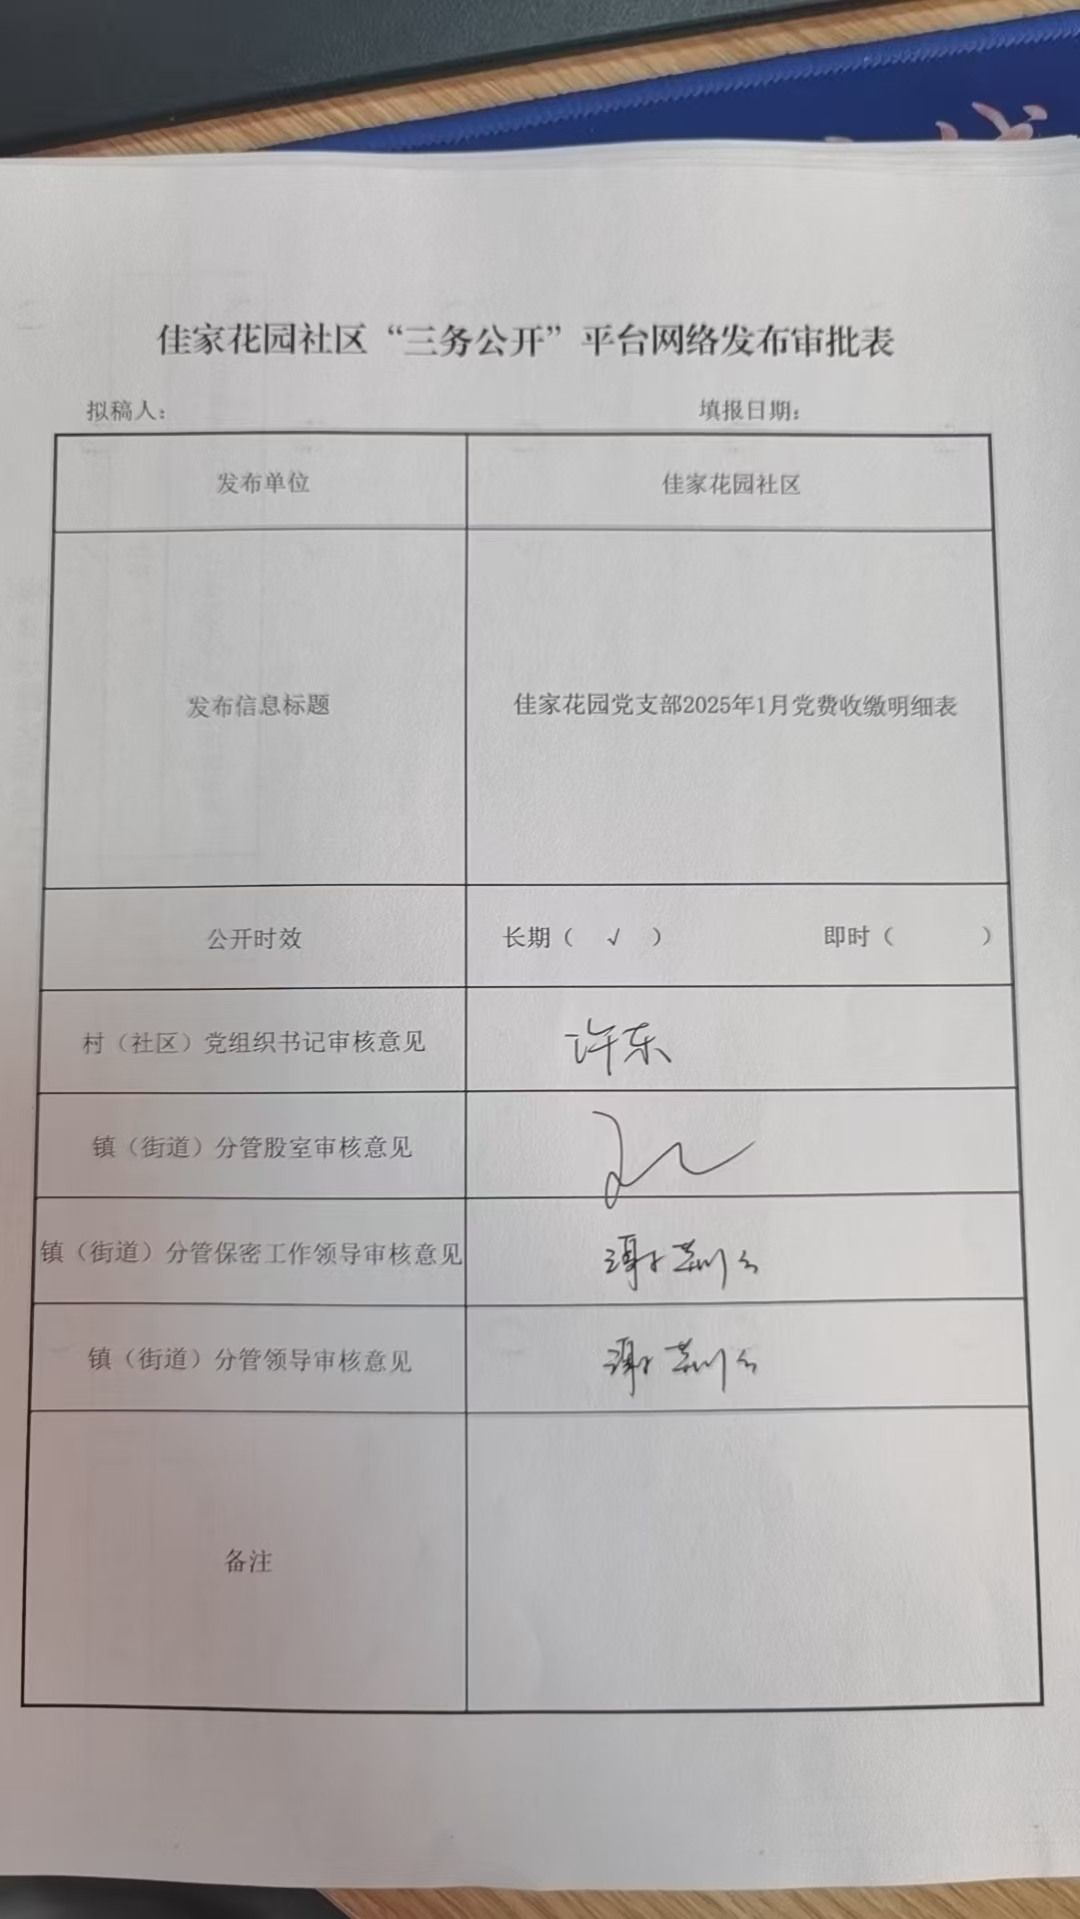 佳家花园社区“三务公开”平台网络发布审批表
拟稿人： 填报日期：
发布单位 佳家花园社区
发布信息标题 佳家花园党支部2025年1月党费收缴明细表
公开时效 长期（ √ ） 即时（ ）
村（社区）党组织书记审核意见 许东
镇（街道）分管股室审核意见
镇（街道）分管保密工作领导审核意见
镇（街道）分管领导审核意见
备注